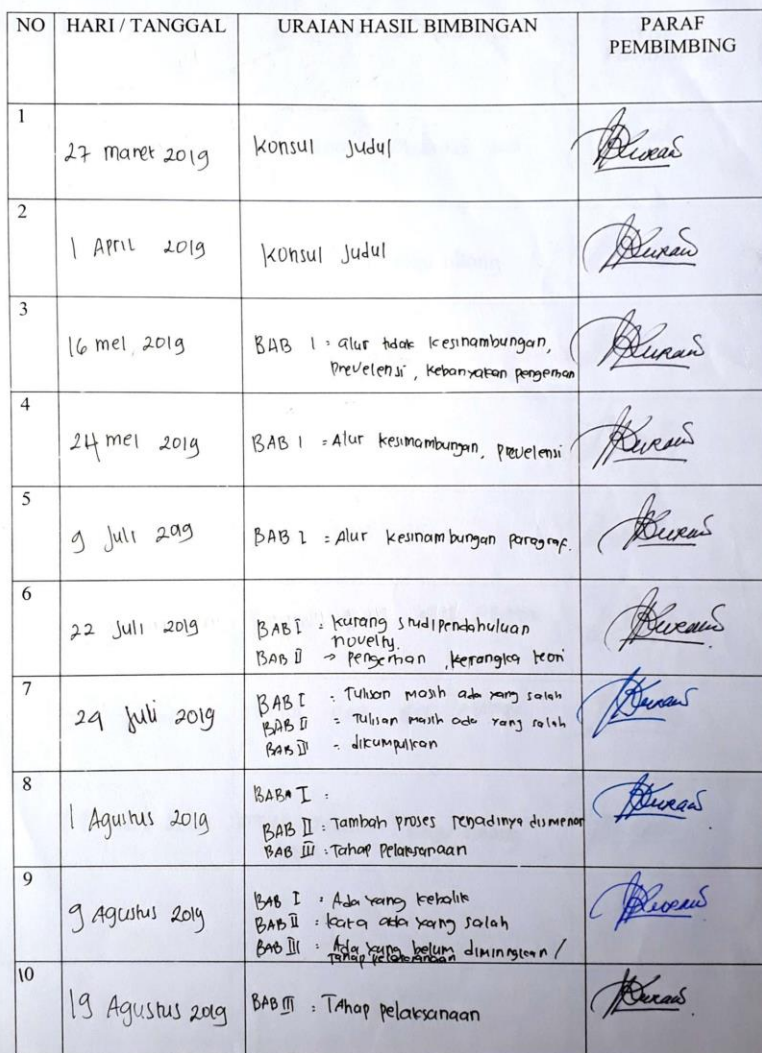 NO HARI / TANGGAL URAIAN HASIL BIMBINGAN PARAF
PEMBIMBING
1
27 maret 2019 konsul Judul
2
1 April 2019 konsul Judul
3
16 mei 2019 BAB I : alur tidak kesinambungan,
prevelensi, kebanyakan pengertian
4
24 mei 2019 BAB I : Alur kesinambungan, prevelensi
5
9 Juli 2019 BAB I : Alur kesinambungan paragraf.
6
22 Juli 2019 BAB I : kurang studi pendahuluan
novelty.
BAB II → pengertian, kerangka teori
7
29 Juli 2019 BAB I : Tulisan masih ada yang salah
BAB II : Tulisan masih ada yang salah
BAB III : dikumpulkan
8
1 Agustus 2019 BAB I :
BAB II : Tambah proses terjadinya dismenor
BAB III : Tahap Pelaksanaan
9
9 Agustus 2019 BAB I : Ada yang kebalik
BAB II : kata ada yang salah
BAB III : Ada yang belum dimiringkan /
Tahap pelaksanaan
10
19 Agustus 2019 BAB III : TAhap pelaksanaan